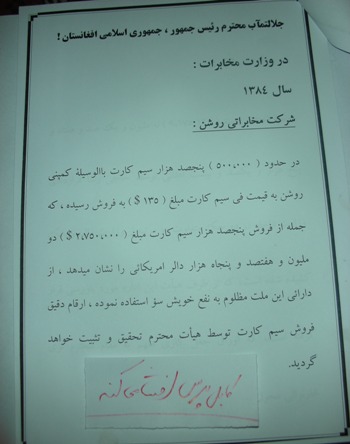 جلالتمآب محترم رئیس جمهور ، جمهوری اسلامی افغانستان !
در وزارت مخابرات :
سال ۱۳۸٤
شرکت مخابراتی روشن :
در حدود ( ۵۰۰،۰۰۰ ) پنجصد هزار سیم کارت باالوسیلۀ کمپنی
روشن به قیمت فی سیم کارت مبلغ ( ۱۳۵ $ ) به فروش رسیده ، که
جمله از فروش پنجصد هزار سیم کارت مبلغ ( ۲،۷۵۰،۰۰۰ $ ) دو
ملیون و هفتصد و پنجاه هزار دالر امریکائی را نشان میدهد ، از
دارائی این ملت مظلوم به نفع خویش سؤ استفاده نموده ، ارقام دقیق
فروش سیم کارت توسط هیأت محترم تحقیق و تثبیت خواهد
گردید.
کابل پرس افشا می کند